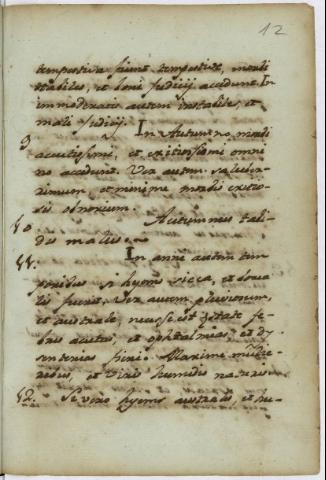 12
tempestiva fiunt tempestive, morbi
stabiles, et boni Judicij accidunt. In
immoderatis autem instabiles, et
mali Judicij. In Autumno morbi
9 acutissimi, et exitiosissimi omni
no accidunt. Ver autem saluber-
rimum et minime morbis exitio-
sis obnoxium.
10. Autumnus tabi-
dis malus.
11. In anni autem tem
poribus si hyems sicca, et borea
lis fuerit, Ver autem pluviosum,
et australe, necesse est aestate fe-
bres acutas, et ophtalmias et dy-
senterias fieri. Maxime mulie-
ribus, et Viris humidis naturis.
12. Si vero hyems australis, et